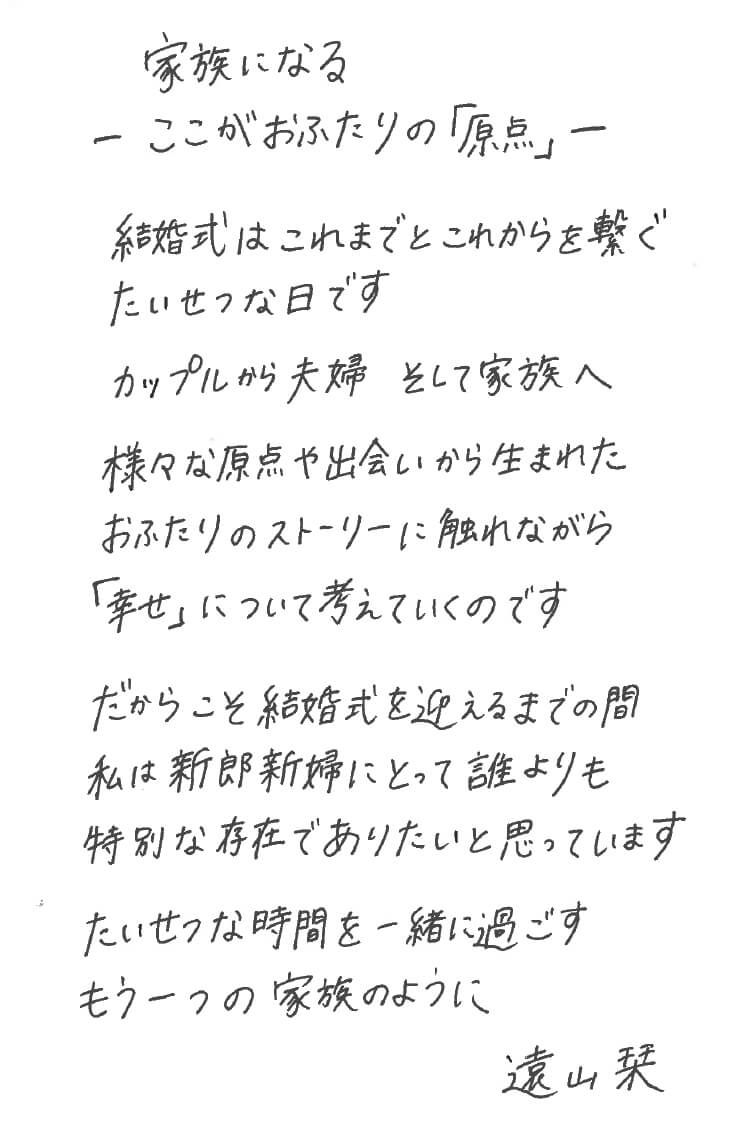 家族になる
ー ここがおふたりの「原点」ー
結婚式はこれまでとこれからを繋ぐ
たいせつな日です
カップルから夫婦 そして家族へ
様々な原点や出会いから生まれた
おふたりのストーリーに触れながら
「幸せ」について考えていくのです
だからこそ結婚式を迎えるまでの間
私は新郎新婦にとって誰よりも
特別な存在でありたいと思っています
たいせつな時間を一緒に過ごす
もう一つの家族のように
遠山栞